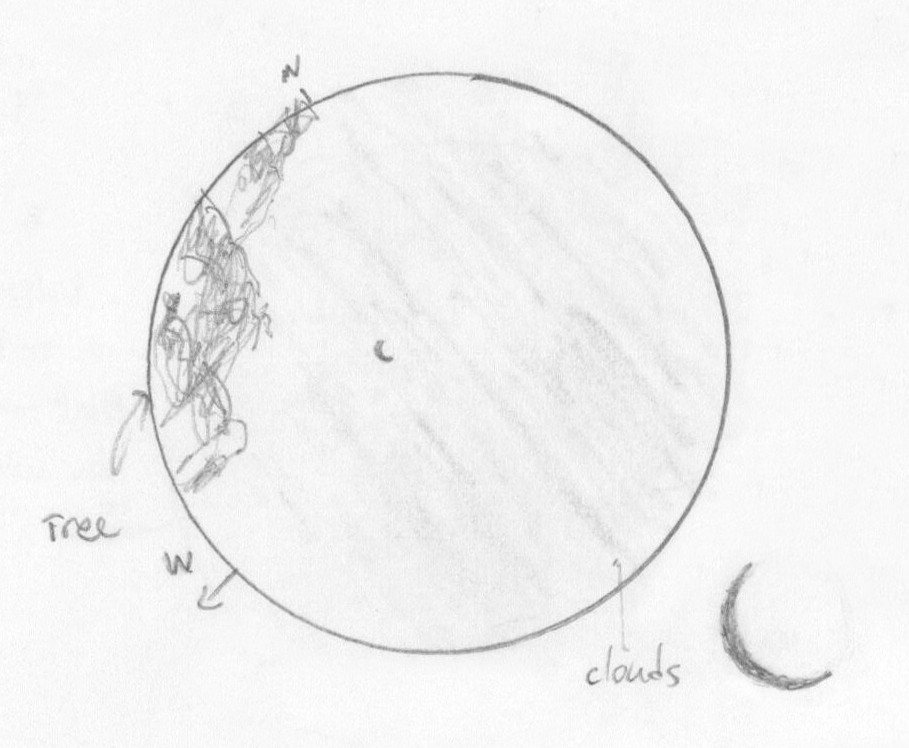 N
Tree
W
clouds